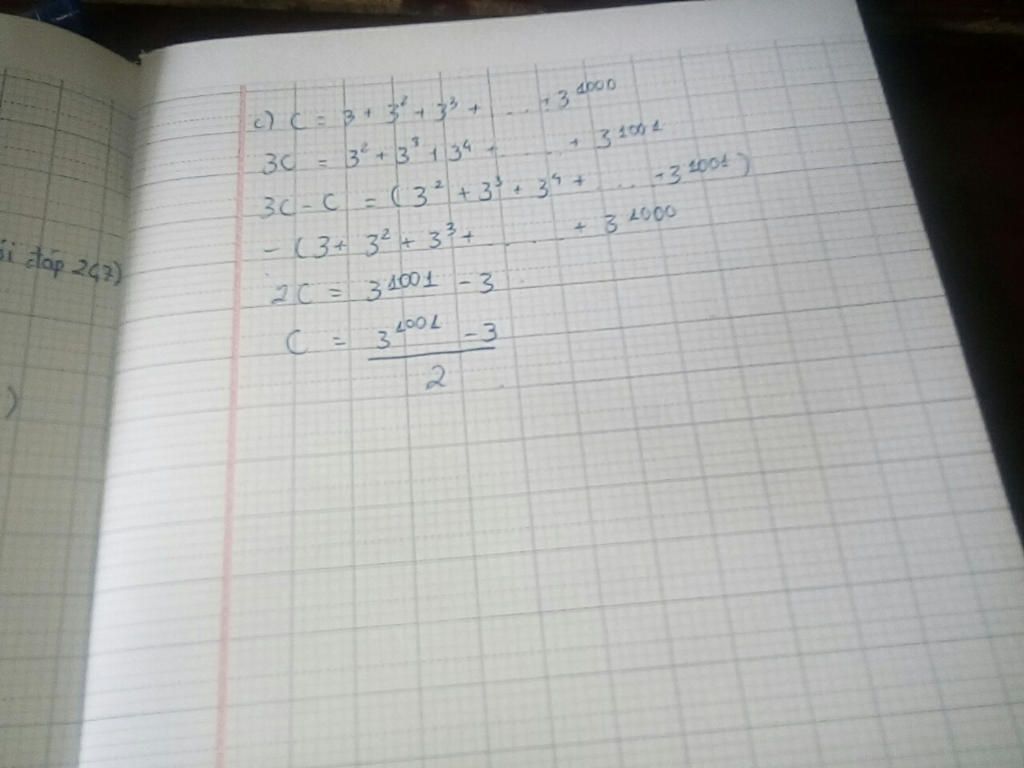 ối đáp 247)
)
c) C = 3 + 3² + 3³ + ..... + 3¹⁰⁰⁰
3C = 3² + 3³ + 3⁴ + ...... + 3¹⁰⁰¹
3C - C = (3² + 3³ + 3⁴ + ..... + 3¹⁰⁰¹)
- (3 + 3² + 3³ + ...... + 3¹⁰⁰⁰
2C = 3¹⁰⁰¹ - 3
C = 3¹⁰⁰¹ - 3
2